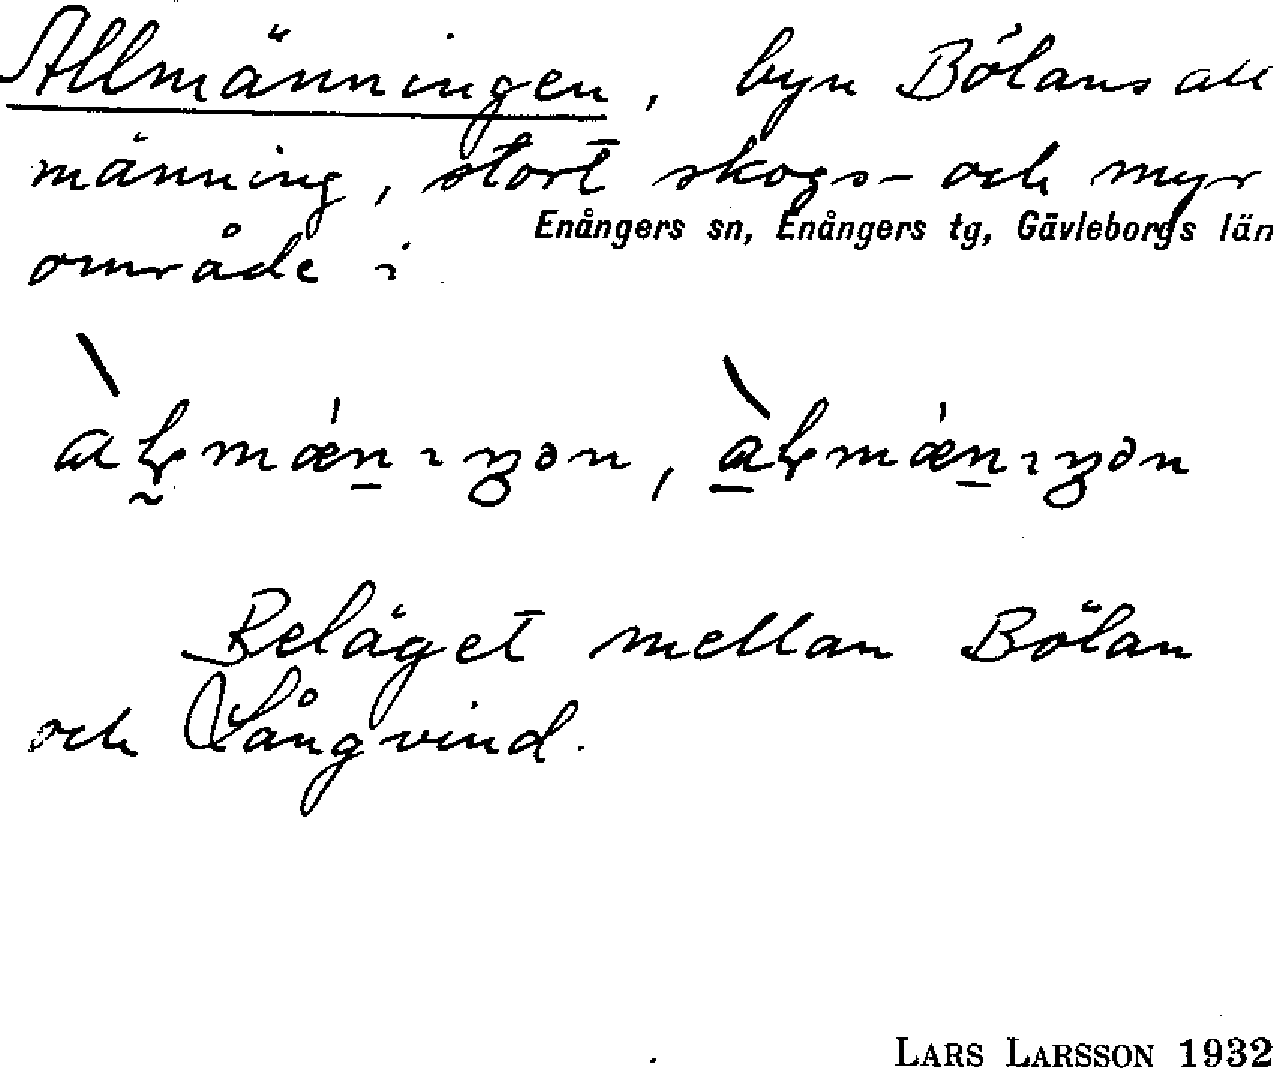 Allmänningen, byn Bölans all
männing, stort skogs- och myr
Enångers sn, Enångers tg, Gävleborgs län
område i
Beläget mellan Bölan
och Långvind.
LARS LARSSON 1932